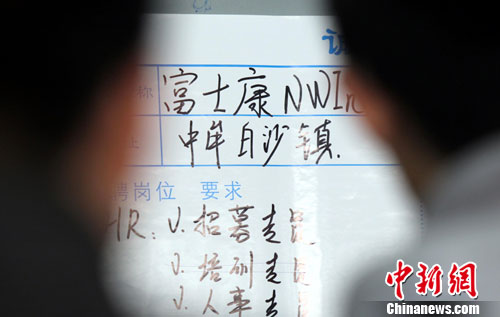 称 富士康 NWIn
址 中岸白沙镇
聘岗位 要求
HR: √. 招募专员
√. 培训专员
√. 人事专
中新网
Chinanews.com